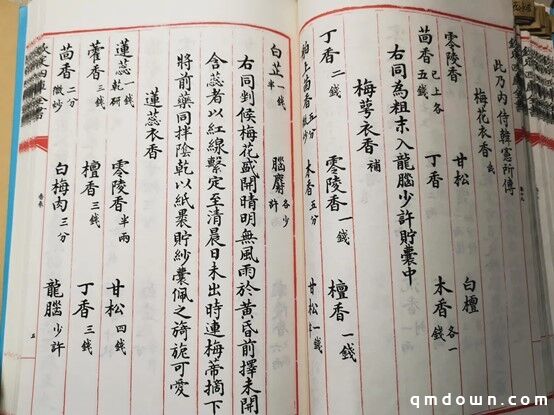 欽定四庫全書
此乃内侍韓憲所傳
梅花衣香 武
零陵香 甘松 白檀
茴香 已上各五錢 丁香 木香 各一錢
右同為粗末入龍腦少許貯囊中
梅萼衣香 補
丁香 二錢 零陵香 一錢 檀香 一錢
舶上茴香 五分微炒 木香 五分 甘松 一錢
白芷 一錢半 腦麝 各少許
右同剉候梅花盛開晴明無風雨於黄昏前擇未開
含蕊者以紅線繫定至清晨日未出時連梅蒂摘下
將前藥同拌陰乾以紙裹貯紗囊佩之旖旎可愛
蓮蕊衣香
蓮蕊 一錢乾研 零陵香 半兩 甘松 四錢
藿香 三錢 檀香 三錢 丁香 三錢
茴香 二分微炒 白梅肉 三分 龍腦 少許
欽定四庫全書
qmdown.com